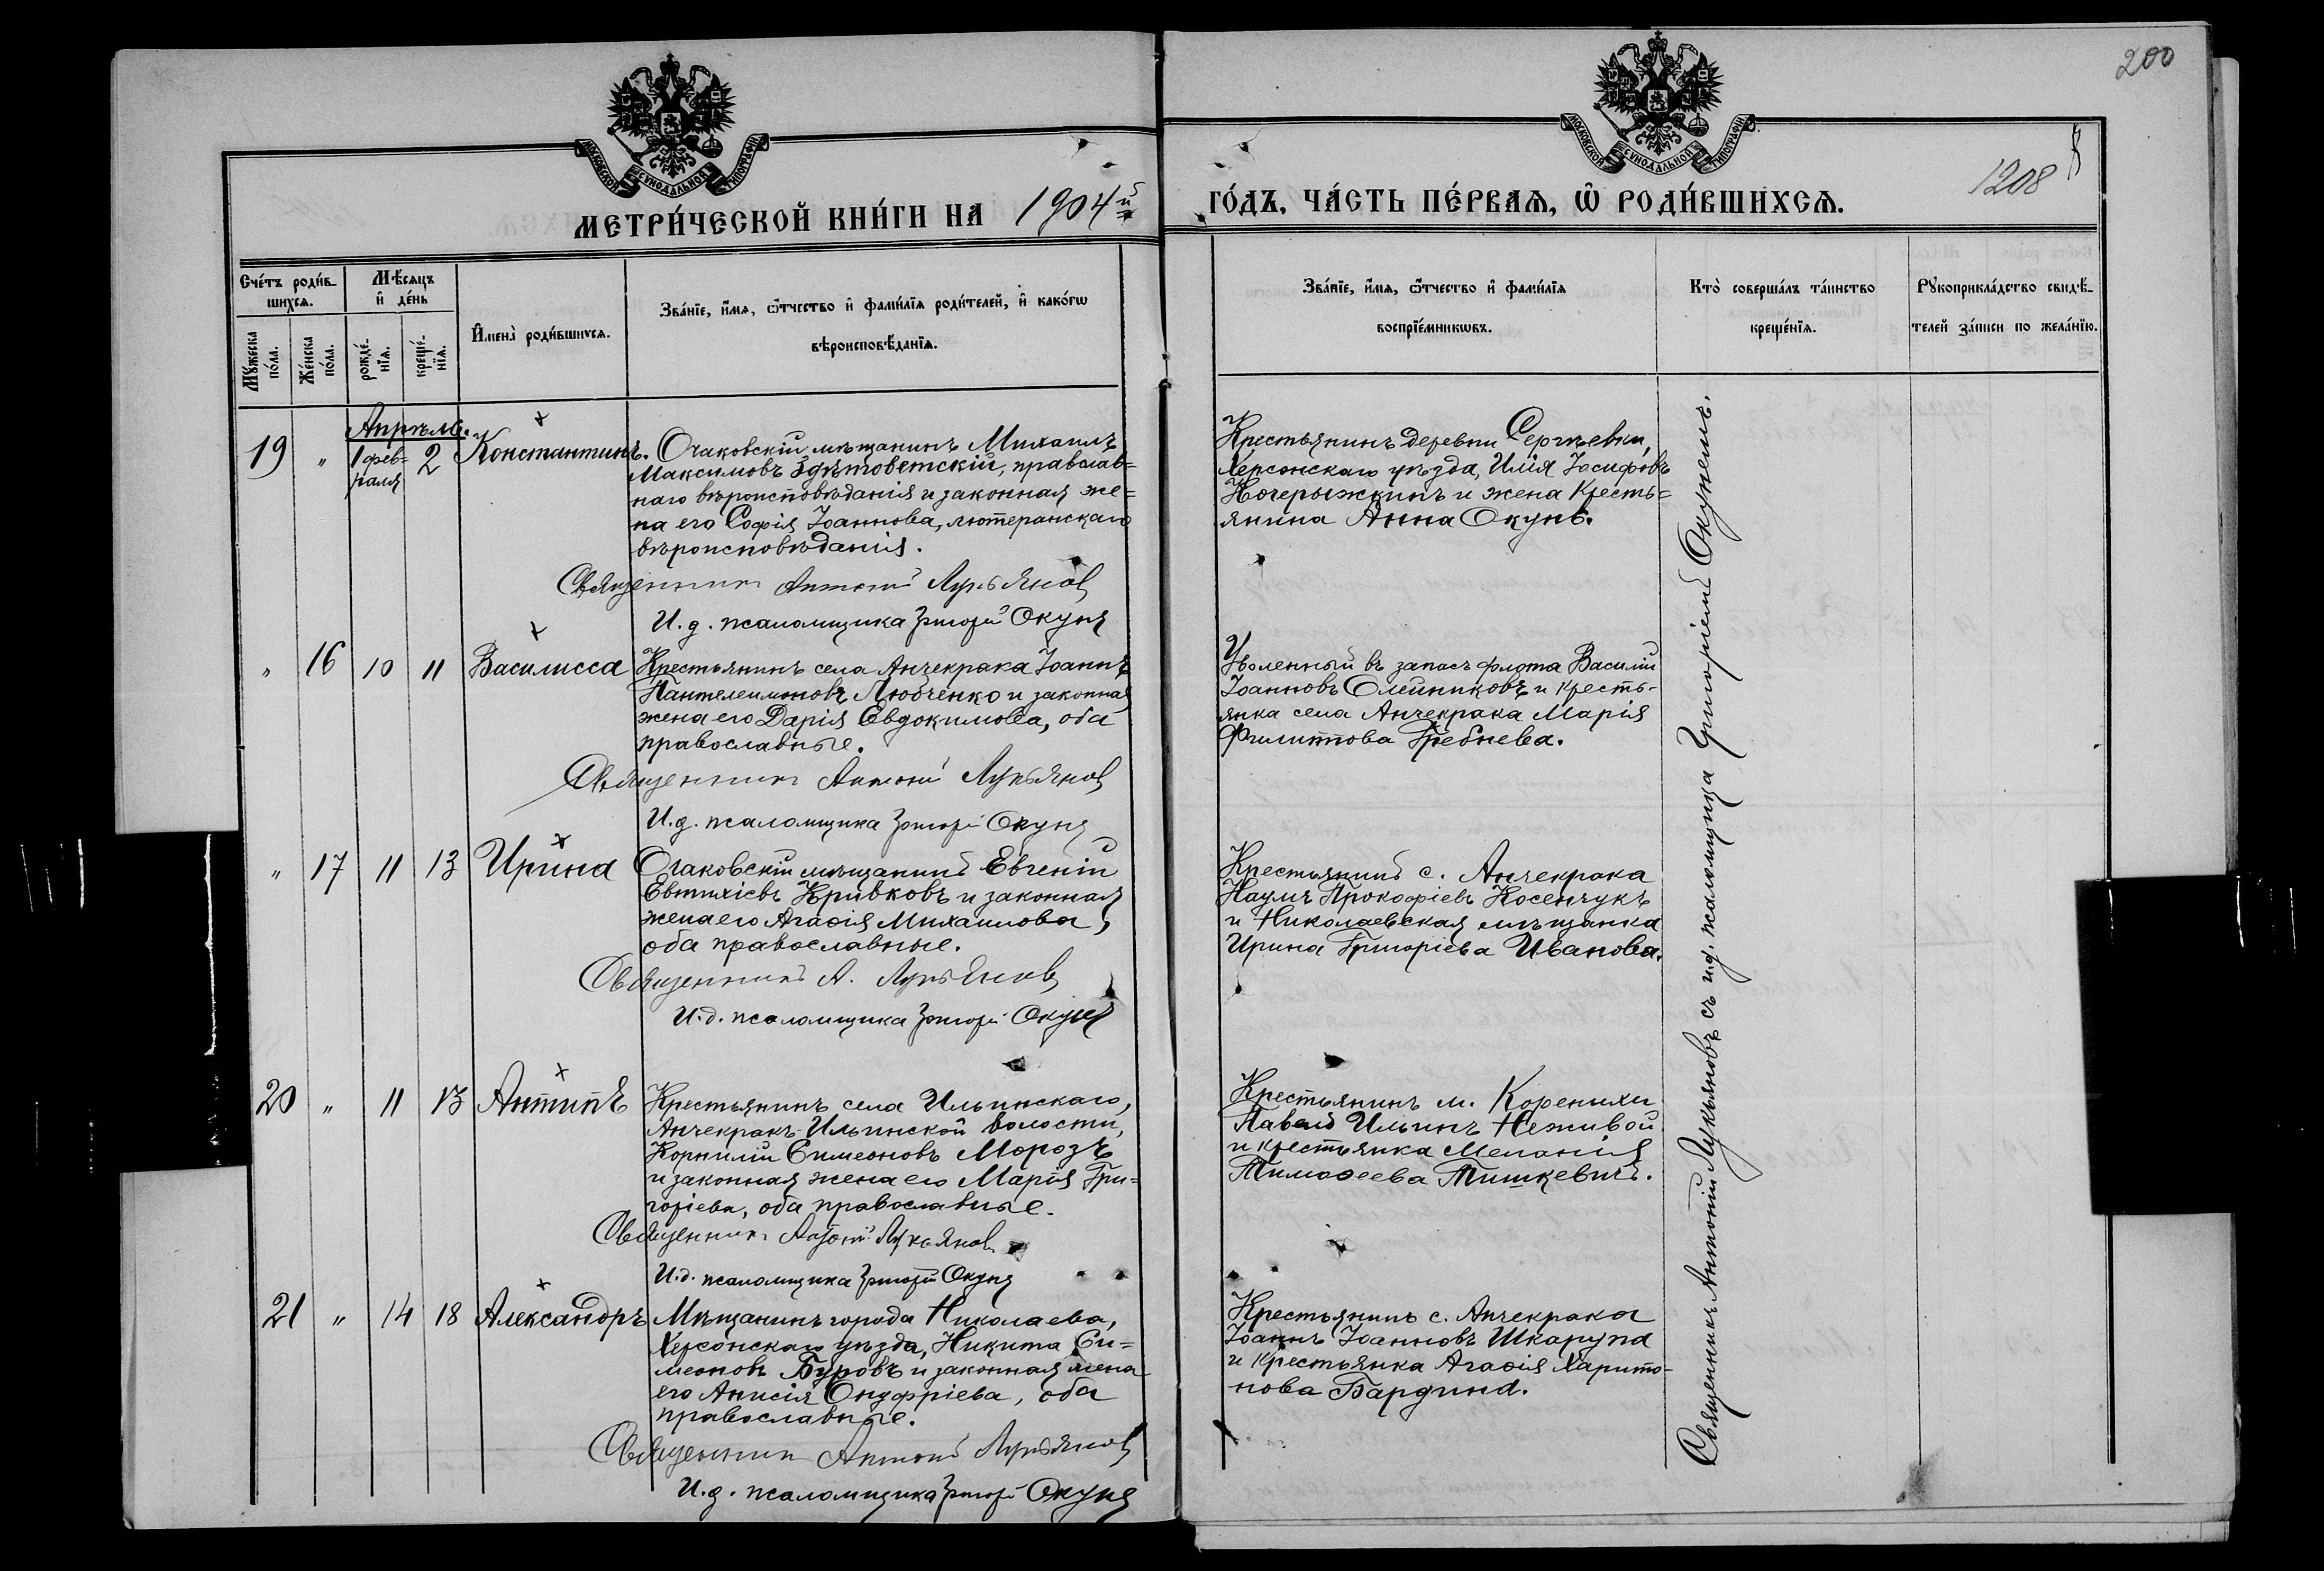 200
1208
МОСКОВСКОЙ СѴНОДАЛЬНОЙ ТИПОГРАФІИ
МОСКОВСКОЙ СѴНОДАЛЬНОЙ ТИПОГРАФІИ
МЕТРИ́ЧЕСКОЙ КНИ́ГИ НА 1904й ГО́ДЪ, ЧА́СТЬ ПЕ́РВАѦ, Ѡ҆ РОДИ́ВШИХСѦ.
Сче́тъ роди́в-
шихсѧ.
Мѣ́сѧцъ
и҆ де́нь
Мꙋ́жеска
по́ла.
Же́нска
по́ла.
рожде́-
нїѧ.
креще́-
нїѧ.
И҆мена̀ роди́вшихсѧ.
Зва́нїе, и҆́мѧ, ѻ҆́тчество и҆ фами́лїѧ роди́телей, и҆ како́гѡ
вѣроисповѣ́данїѧ.
Зва́нїе, и҆́мѧ, ѻ҆́тчество и҆ фами́лїѧ
воспрїе́мникѡвъ.
Кто̀ соверша́лъ та́инство
креще́нїѧ.
Рꙋкоприкла́дство свидѣ́-
телей за́писи по жела́нїю.
Апрѣль.
19 " 1 фев=
раля 2 Константинъ. Очаковскій мѣщанинъ Михаилъ
Максимовъ православ=
наго вѣроисповѣданія и законная же=
на его Софія Іоаннова, лютеранскаго
вѣроисповѣданія.
Священникъ Антоній Лукьяновъ
И. д. псаломщика Григорій Окунь
Крестьянинъ деревни Сергѣевки,
Херсонскаго уѣзда, Илія Іосифовъ
Кочерыжкинъ и жена кресть=
янина Анна Окунь.
" 16 10 11 Василисса Крестьянинъ села Анчекрака Іоаннъ
Пантелеимоновъ Любченко и законная
жена его Дарія Евдокимова, оба
православные.
Священникъ Антоній Лукьяновъ
И. д. псаломщика Григорій Окунь
Уволенный въ запасъ флота Василій
Іоанновъ Олейниковъ и кресть-
янка села Анчекрака Марія
Филиппова Гребнева.
" 17 11 13 Ирина Очаковскій мѣщанинъ Евгеній
Евтихіевъ Кривковъ и законная
жена его Агаѳія Михаилова,
оба православные.
Священникъ А. Лукьяновъ
И. д. псаломщика Григорій Окунь
Крестьянинъ с. Анчекрака
Наумъ Прокофіевъ Косенчукъ
и Николаевская мѣщанка
Ирина Григоріева Иванова.
20 " 11 13 Антипъ Крестьянинъ села Ильинскаго,
Анчекракъ-Ильинской волости,
Корнилій Симеоновъ Морозъ
и законная жена его Марія Гри=
горіева, оба православные.
Священникъ Антоній Лукьяновъ
И. д. псаломщика Григорій Окунь
Крестьянинъ м. Коренихи
Павелъ Ильинъ Неживой
и крестьянка Меланія
Тимоѳеева Тишкевичъ.
21 " 14 18 Александръ Мѣщанинъ города Николаева,
Херсонскаго уѣзда, Никита Си=
меоновъ Буровъ и законная жена
его Анисія Онуфріева, оба
православные.
Священникъ Антоній Лукьяновъ
И. д. псаломщика Григорій Окунь
Крестьянинъ с. Анчекрака
Іоаннъ Іоанновъ Шкарупа
и крестьянка Агаѳія Харито-
нова Бардина.
Священникъ Антоній Лукьяновъ съ и. д. псаломщика Григоріемъ Окунемъ.